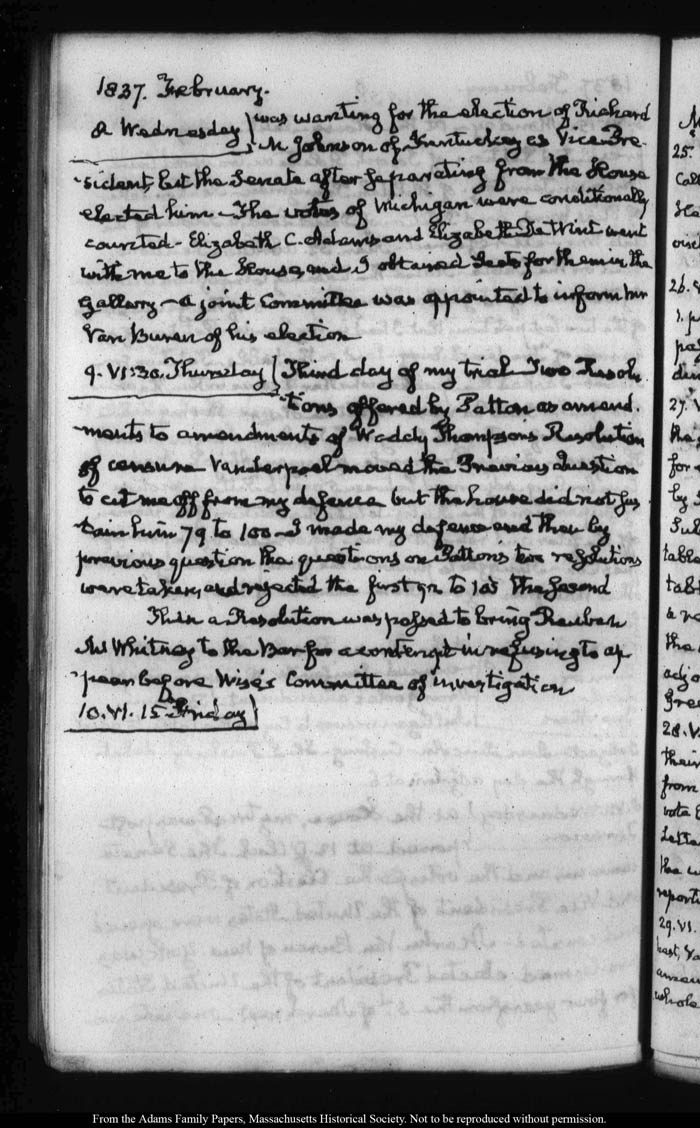 1837. February.
8 Wednesday} was wanting for the election of Richard
M Johnson of Kentuckey as Vice Pre-
-sident, but the Senate after separating from the House
elected him - The votes of Michigan were conditionally
counted - Elizabeth C. Adams and Elizabeth De Wint went
with me to the House, and I obtained Seats for them in the
gallery - a joint Committee was appointed to inform Mr
Van Buren of his election
9. VI:30. Thursday} Third day of my trial Two Resolu
-tions offered by Patton as amend.
-ments to amendments of Waddy Thompson's Resolution
of censure Vanderpoel moved the Previous Question
to cut me off from my defence but the house did not sus
-tain him 79 to 100 - I made my defence and then by
previous question the questions on Patton's two resolutions
were taken, and rejected the first 92 to 105 the second
Then a Resolution was passed to bring Reuben
M Whitney to the Bar for a contempt in refusing to ap
-pear before Wise's Committee of investigation
10. VI. 15 Friday}
25.
26.
27. V
for
by
table
the
adjo
28. V.
their
from
vote
Lette
the
reporti
29. VI.
whole
From the Adams Family Papers, Massachusetts Historical Society. Not to be reproduced without permission.